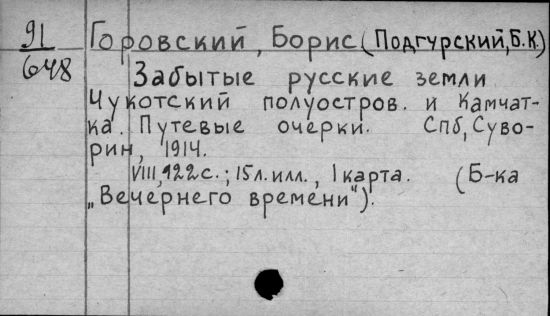 91
648
Горовский, Борис (Подгурский, Б.К.)
Забытые русские земли
Чукотский полуостров. и Камчат-
ка. Путевые очерки. Спб, Суво-
рин, 1914.
VIII, 122 с.; 15 л. илл., 1 карта. (Б-ка
„Вечернего времени").